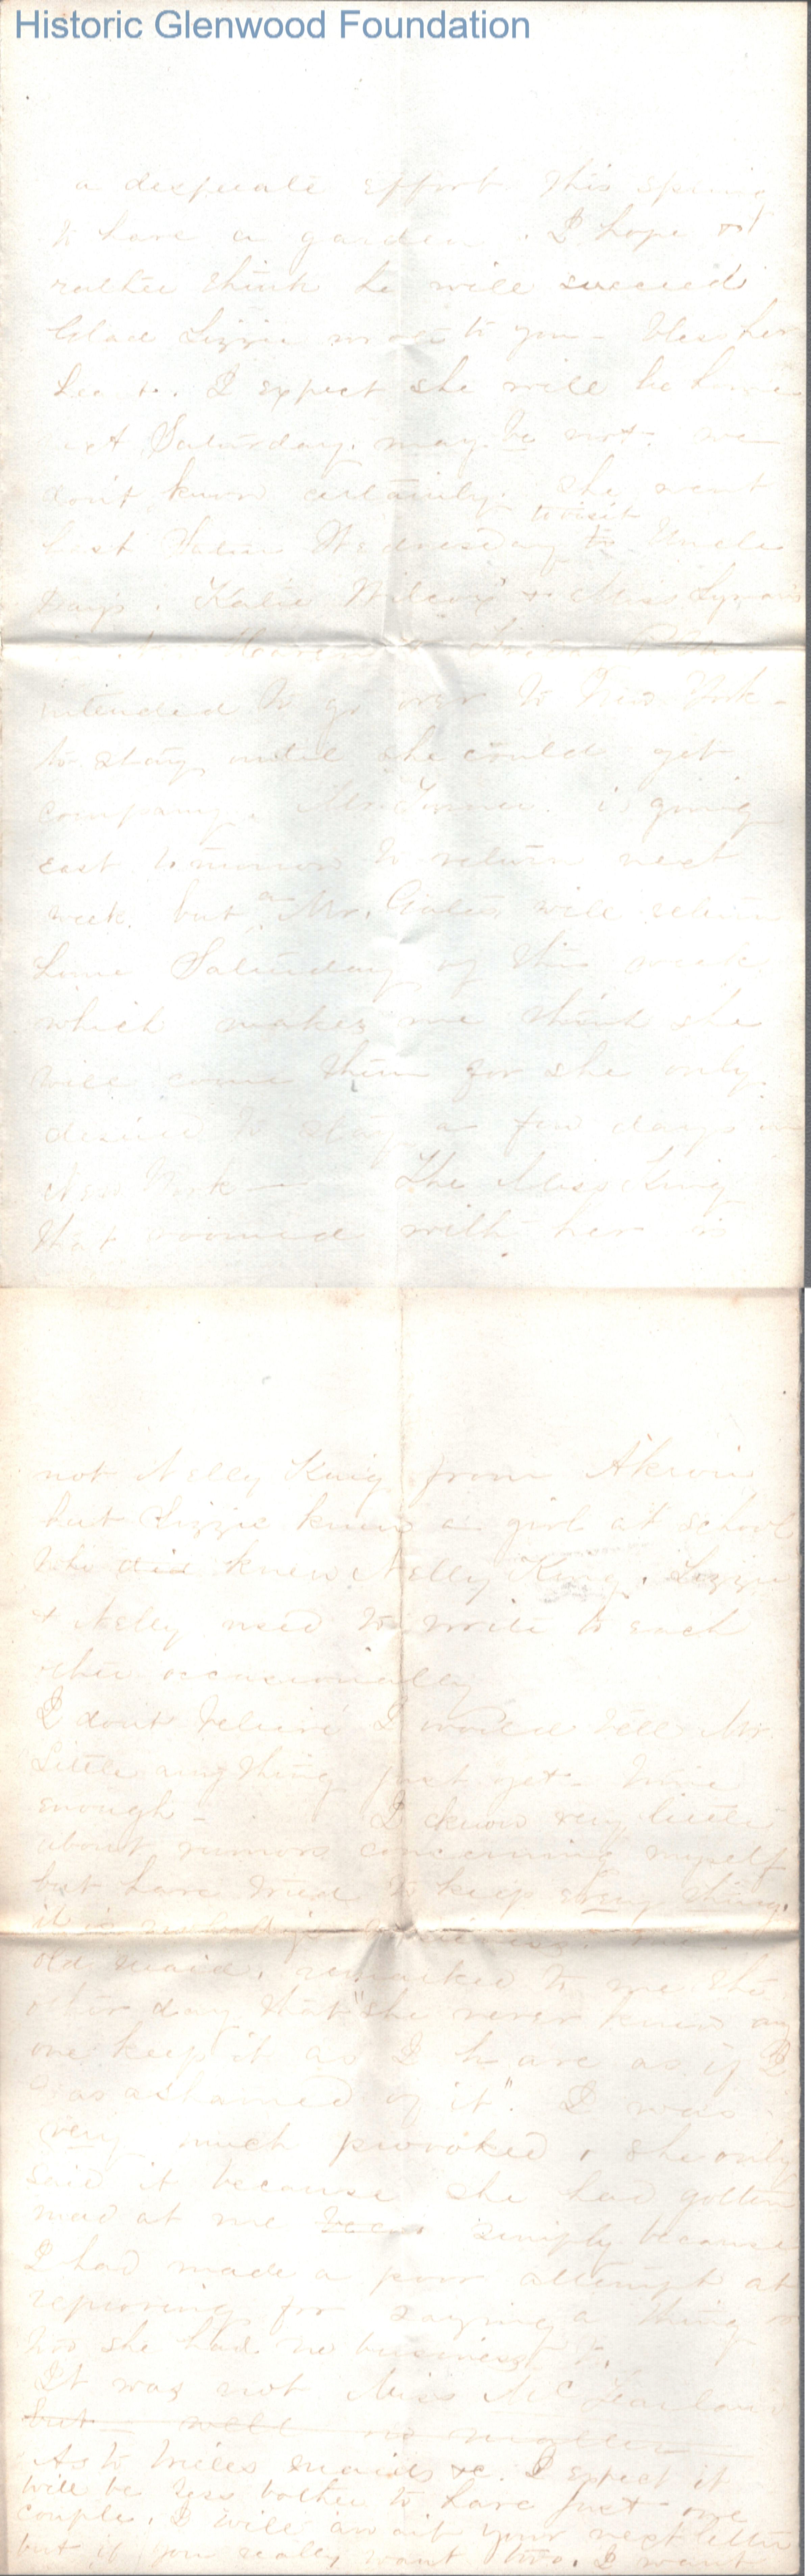 Historic Glenwood Foundation
a desperate effort this spring
to have a garden. I hope &
rather think he will succeed
Glad Lizzie wrote to you - bless her
heart. I expect she will be home
next Saturday. may be not. we
don't know certainly. She went
to visit
last Wednesday to Uncle
Day's. Katie Wilcox & Miss Lyman
intended to go over to New York -
to stay until she could get
company. is going
east tomorrow to return next
week. but a Mr. Gates will return
home Saturday of this week
which makes me think she
will come then for she only
desired to stay a few days in
New York — The Miss King
that roomed with her is
not Nelly King from Akron
but Lizzie knew a girl at school
who did know Nelly King. Lizzie
& Nelly used to write to each
other occasionally
I dont believe I would tell Mr.
Little any thing just yet - time
enough - I know very little
about rumors concerning myself
but have tried to keep every thing.
it is nobody's
old maid, remarked to me the
other day that "she never knew any
one keep it as I have as if I
was ashamed of it". I was
very much provoked, she only
said it because she had gotten
mad at me simply because
I had made a poor attempt at
reproving for saying a thing
she had no business to.
It was not Miss McFarland
but well no matter
As to brides maids &c. I expect it
will be less bother to have just one
couple. I will await your next letter
but if you really want two. I want